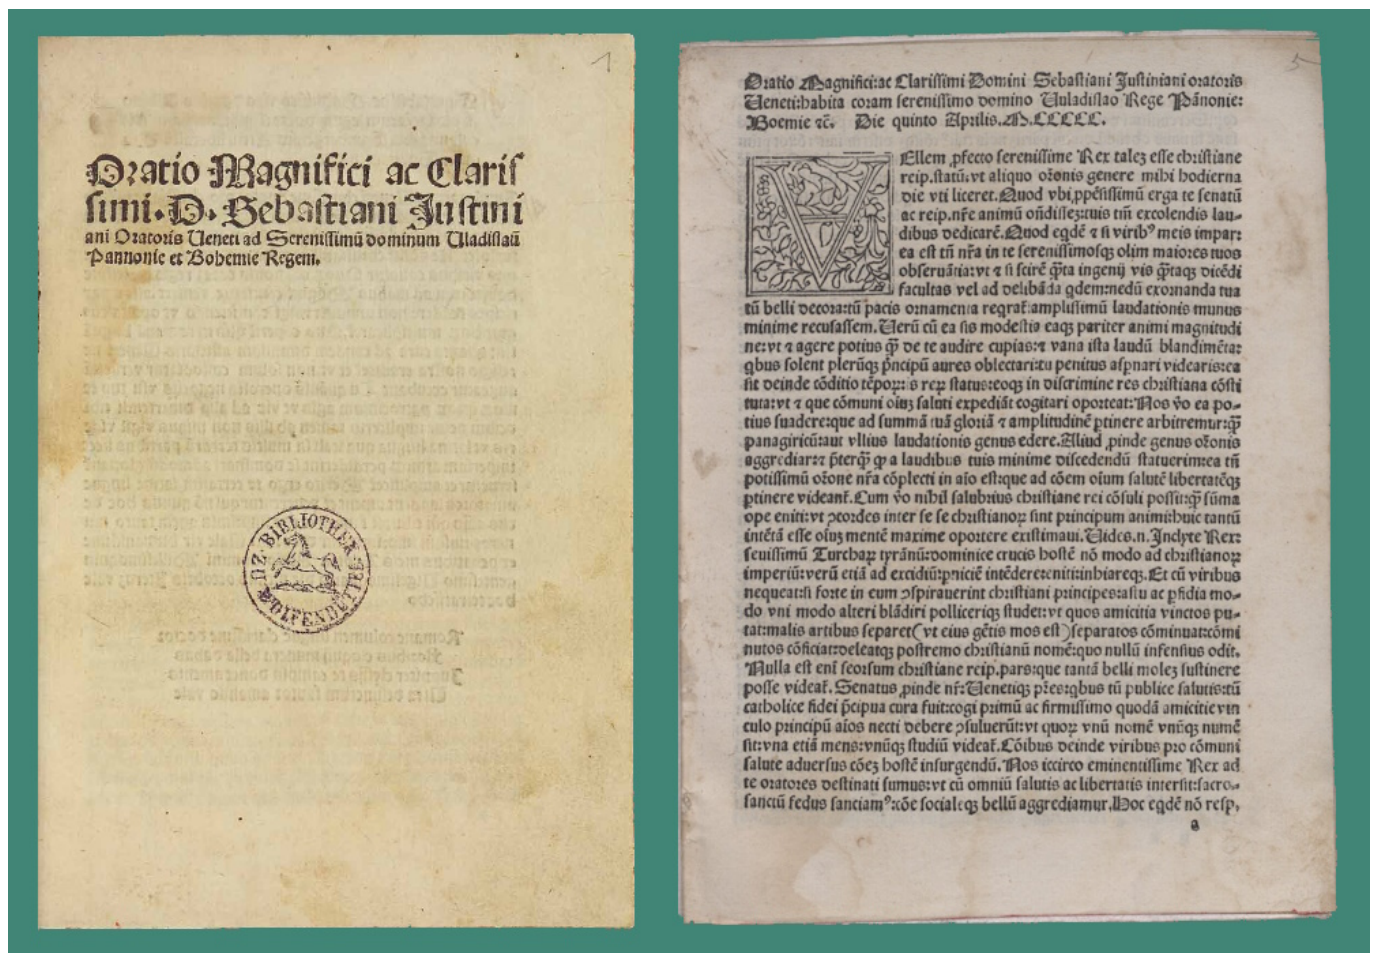 1
Oratio Magnifici ac Clariſ
ſimi. D. Sebaſtiani Juſtini
ani Oratoris Ueneti ad Sereniſſimū dominum Uladiſlaū
Pannonie et Bohemie Regem.
BIBLIOTHEK
WOLFENBÜTTEL
5
Oratio Magnifici: ac Clariſſimi Domini Sebaſtiani Juſtiniani oratoris
Ueneti: habita coram ſereniſſimo domino Uuladiſlao Rege Pānonie:
Boemie ⁊c. Die quinto Aprilis. M.CCCCC.
VEllem ꝓfecto ſereniſſime Rex taleʒ eſſe chriſtiane
reip. ſtatū: vt aliquo orōnis genere mihi hodierna
die vti liceret. Quod vbi, ꝓpēſiſſimū erga te ſenatū
ac reip. nr̄e animū oñdiſſeʒ: tuis tm̄ excolendis lau-
dibus dedicarē. Quod eqdē ⁊ ſi viribꝰ meis impar:
ea eſt tn̄ nr̄a in te ſereniſſimoſqʒ olim maiores tuos
obſeruātia: vt ⁊ ſi ſcirē q̄ta ingenij vis q̄taqʒ dicēdi
facultas vel ad delibāda qdem: nedū exornanda tua
tū belli decora: tū pacis ornamenta reqrat̄: ampliſſimū laudationis munus
minime recuſaſſem. Uerū cū ea ſis modeſtia eaqʒ pariter animi magnitudi
ne: vt ⁊ agere potius q̄ꝫ de te audire cupias: ⁊ vana iſta laudū blandimēta:
qbus ſolent plerūqʒ p̄ncipū aures oblectari: tu penitus aſpnari videaris: ea
ſit deinde cōditio tēpoꝝ: is reꝝ ſtatus: eoqʒ in diſcrimine res chriſtiana cōſti
tuta: vt ⁊ que cōmuni oiuʒ ſaluti expediāt cogitari oporteat: Nos ꝟo ea po-
tius ſuadere: que ad ſummā tuā gloriā ⁊ amplitudinē ꝑtinere arbitremur: q̄ꝫ
panagiricū: aut vllius laudationis genus edere. Aliud ꝓinde genus orōnis
aggrediar: ⁊ p̄terqʒ ꝙ a laudibus tuis minime diſcedendū ſtatuerim: ea tn̄
potiſſimū orōne nr̄a cōplecti in aīo eſt: que ad cōem oium ſalutē libertatēqʒ
ꝑtinere videant̄. Cum ꝟo nihil ſalubrius chriſtiane rei cōſuli poſſit: q̄ꝫ ſūma
ope eniti: vt ꝯcordes inter ſe ſe chriſtianoꝝ ſint principum animi: huic tantū
intētā eſſe oiuʒ mentē maxime oportere exiſtimaui. Uides. n. Inclyte Rex:
ſeuiſſimū Turchaꝝ tyrānū: dominice crucis hoſtē nō modo ad chriſtianoꝝ
imperiū: verū etiā ad excidiū: ꝑniciē intēdere: eniti: inhiareqʒ. Et cū viribus
nequeat: ſi forte in eum ꝯſpirauerint chriſtiani principes: aſtu ac ꝑfidia mo-
do vni modo alteri blādiri pollicerіqʒ ſtudet: vt quos amicitia vinctos pu-
tat: malis artibus ſeparet (vt eius gētis mos eſt) ſeparatos cōminuat: cōmi
nutos cōficiat: deleatqʒ poſtremo chriſtianū nomē: quo nullū infenſius odit.
Nulla eſt enī ſeorſum chriſtiane reip. pars: que tantā belli moleʒ ſuſtinere
poſſe videat̄. Senatus ꝓinde nr̄: Uenetiqʒ pr̄es: qbus tū publice ſalutis: tū
catholice fidei p̄cipua cura fuit: cogi primū ac firmiſſimo quodā amicitie vin
culo principū aīos necti debere ꝯſuluerūt: vt quoꝝ vnū nomē vnūqʒ numē
ſit: vna etiā mens: vnūqʒ ſtudiū videat̄. Cōibus deinde viribus pro cōmuni
ſalute aduerſus cōeʒ hoſtē inſurgendū. Nos iccirco eminentiſſime Rex ad
te oratores deſtinati ſumus: vt cū omniū ſalutis ac libertatis interſit: ſacro-
ſanctū fedus ſanciamꝰ: cōe ſocialeqʒ bellū aggrediamur. Hoc eqdē nō reſp.
a